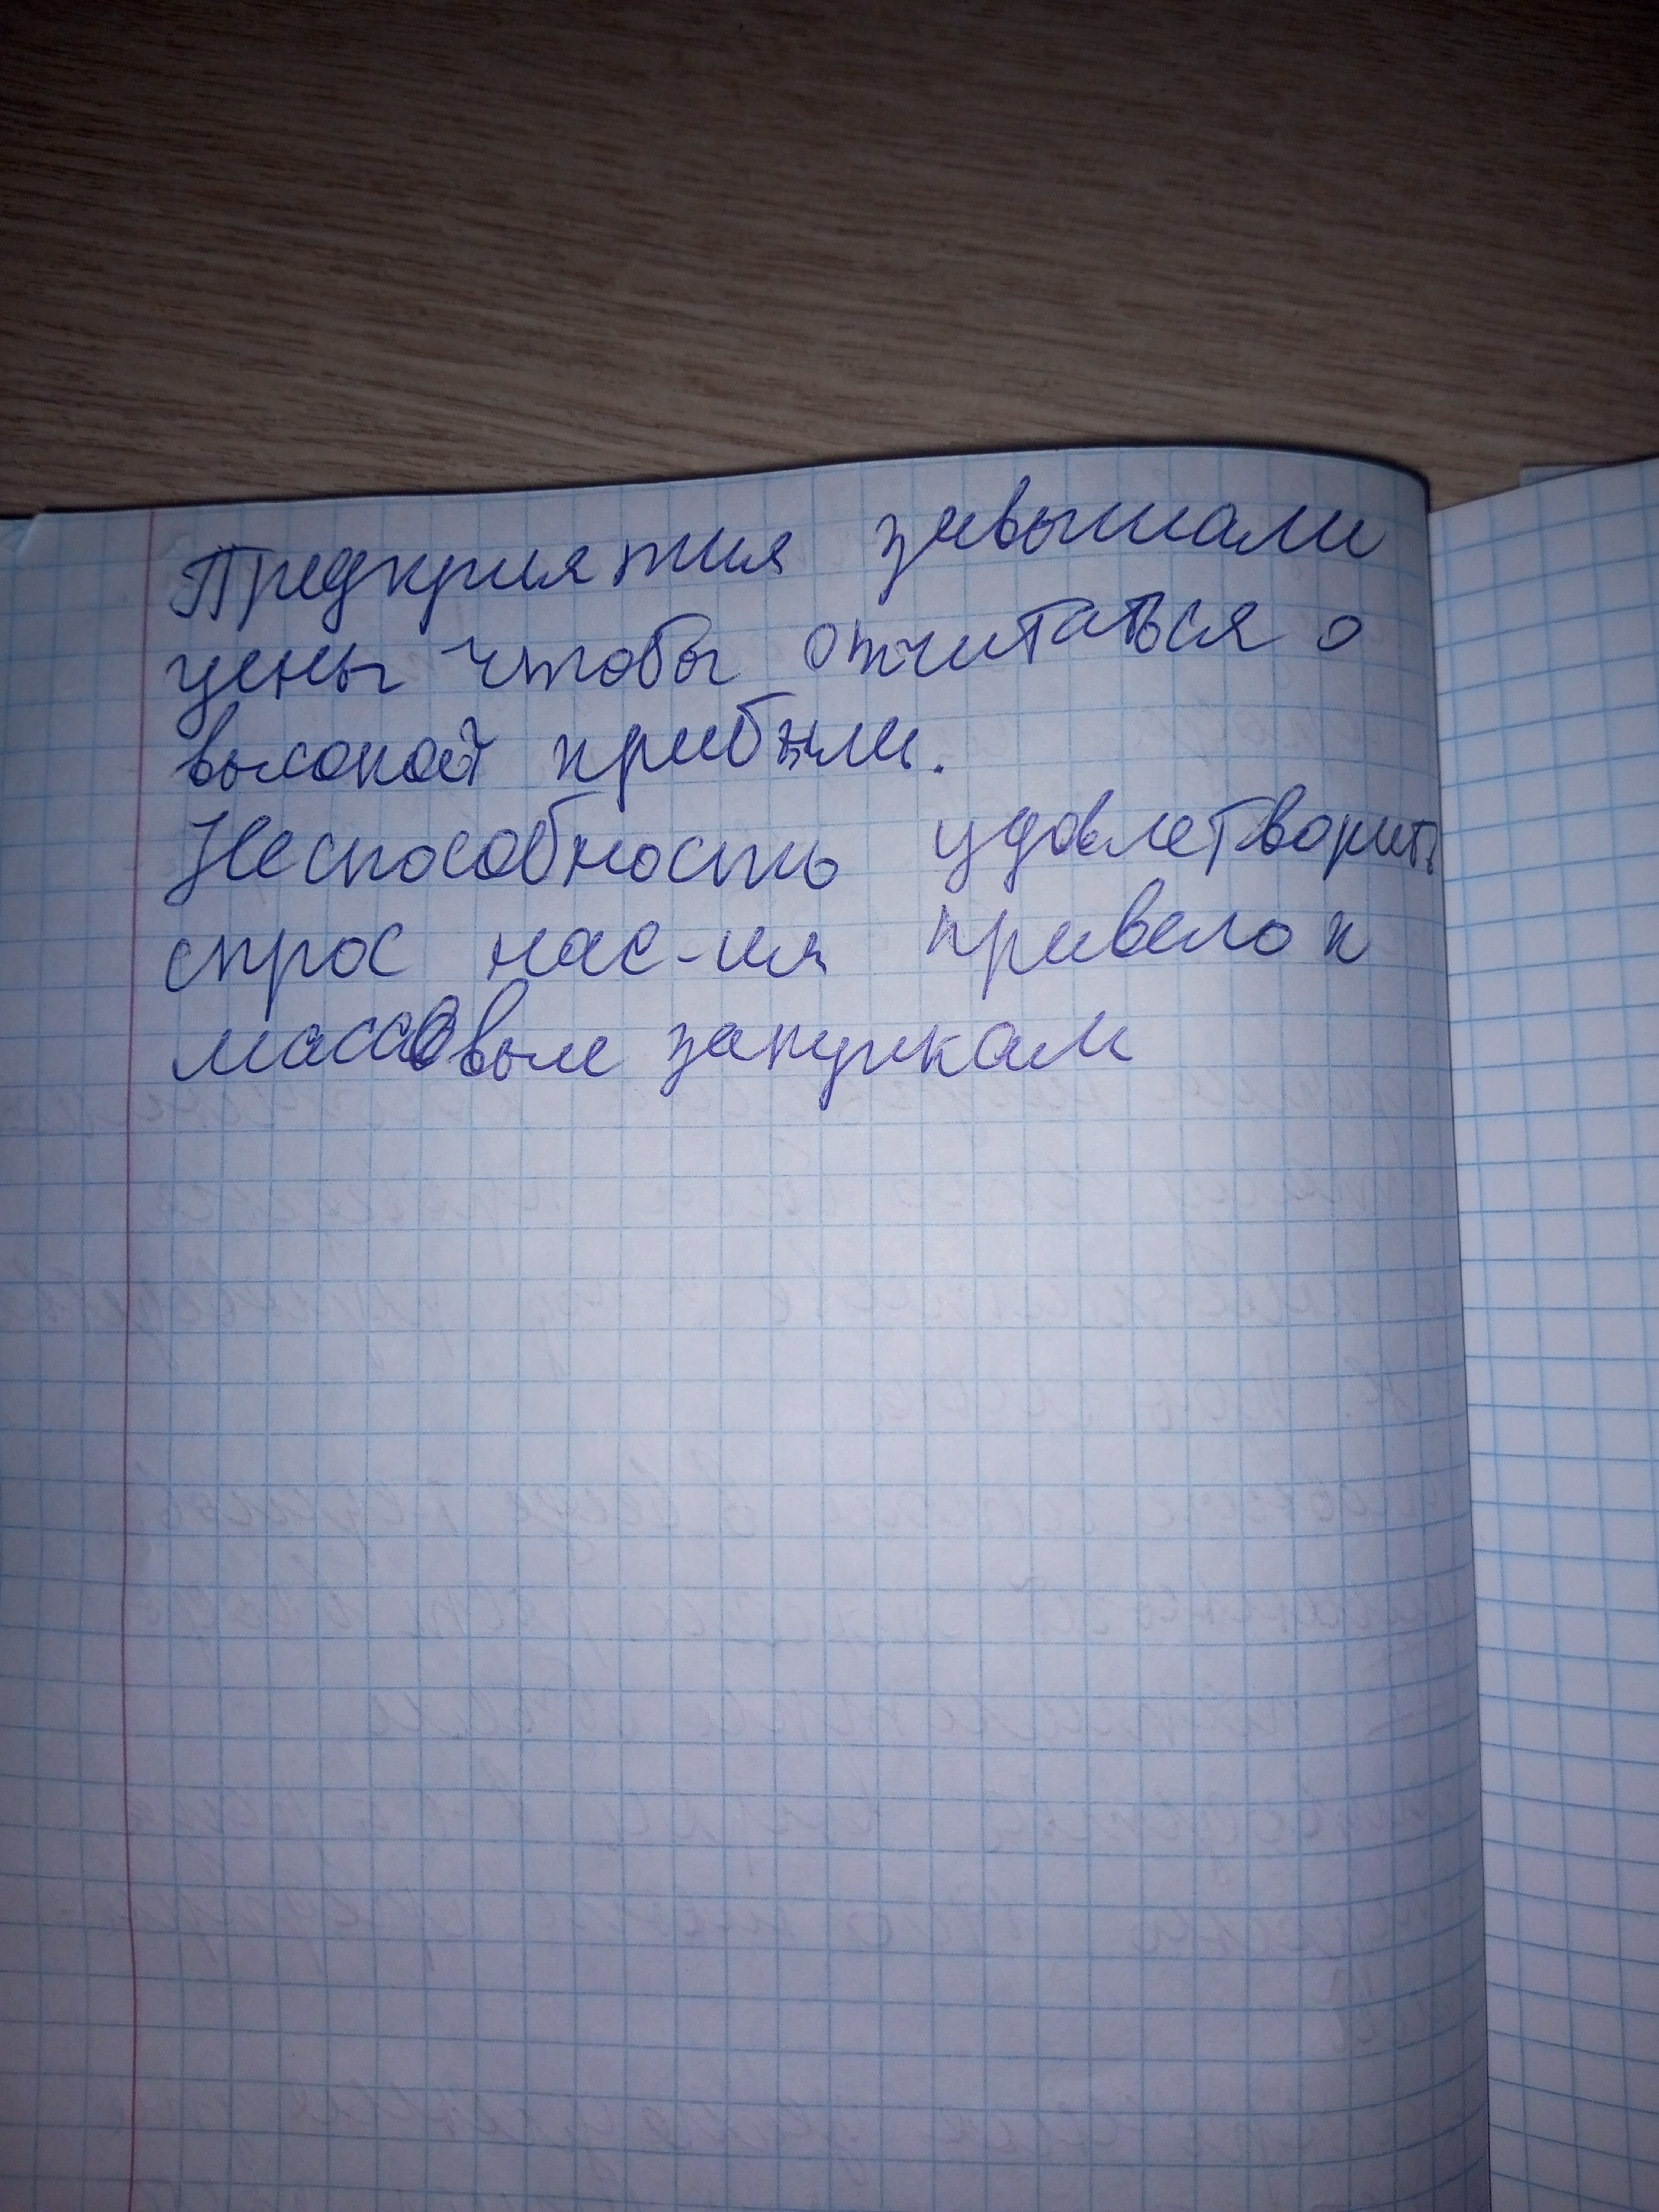 Предприятия завышали
цены чтобы отчитаться о
высокой прибыли.
Неспособность удовлетворить
спрос нас-ия привело к
массовым закупкам